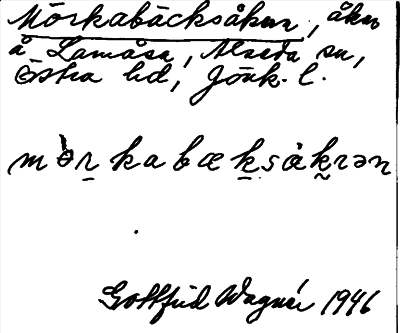 Mörkabäcksåkern, åker
å Lamåsa, Alseda sn,
Östra hd, Jönk. l.
mòṟkabæḵsåk̰rən
Gottfrid Wagnér 1946